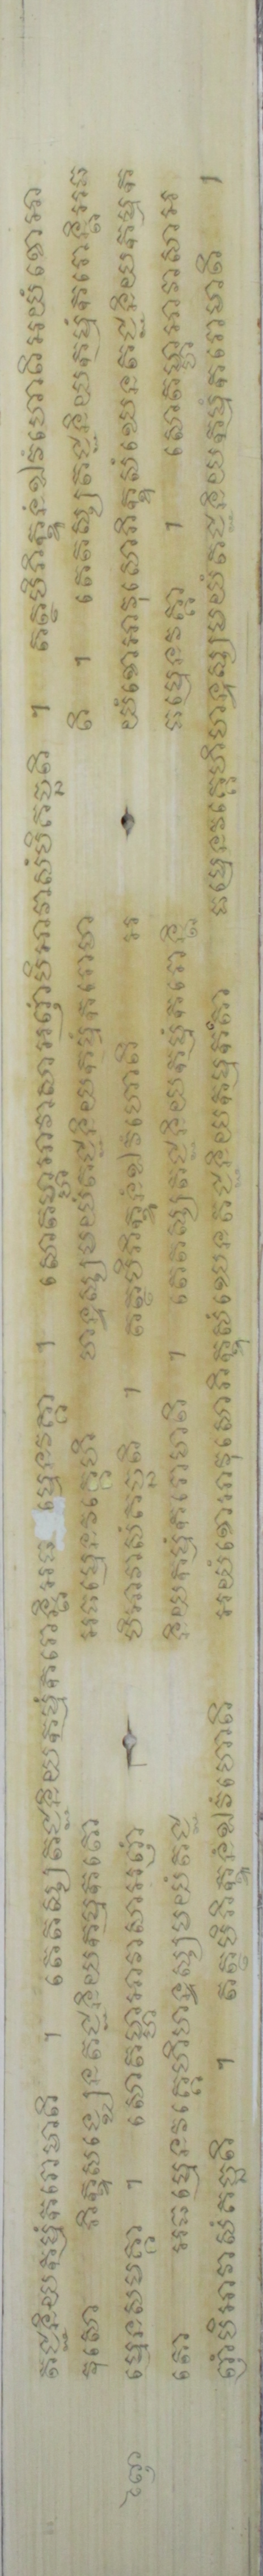 តជ្ជនិយកម្មំករោមាតិ ។ តេតស្សតជ្ជនិយកម្មំករោន្តិអធ ម្មេនវគ្គា ។ សោតម្ហាអាវាសាអញំាបិអាវាសំបិគច្ឆតិ ។ តត្ថបិភិក្ខូនំឯវំហោតិអយំខោអា
វុសោ ភិក្ខុសង្ឃេនតជ្ជនិយកម្មកតោ អធម្មេនវគ្គេហិ ហន្ទស្សមយំតជ្ជនិយកម្មំករោមា តិ ។ តេតស្សតជ្ជនិយកម្មំករោន្តិអធ
ម្មេនសមគ្គា ។ សោតម្ហាអាវាសាអញំា បិអាវាសំគច្ឆតិ ។ តត្ថបិភិក្ខូនំឯវំហោតិ អ យំខោអាវុសោភិក្ខុសំឃេនតជ្ជនិយកម្មក
តោ អធម្មេនវគ្គេហិហន្ទស្សមយំតជ្ជ និយកម្មំករោមាតិ ។ តេតស្សតជ្ជនិយកម្មំករោន្តិ ធម្មេនវគ្គា ។ សោតម្ហាអាវាសាអ
ញំាបិអាវាសំគច្ឆតិ ។ តត្ថបិភិក្ខូនំឯវំហោតិ អយំខោអាវុសោភិក្ខុសំឃេនតជ្ជនិយកម្មកតោ ធម្មេនវគ្គេហិហន្ទស្សមយំតជ្ជនិយកម្មំករោមាតិ ។